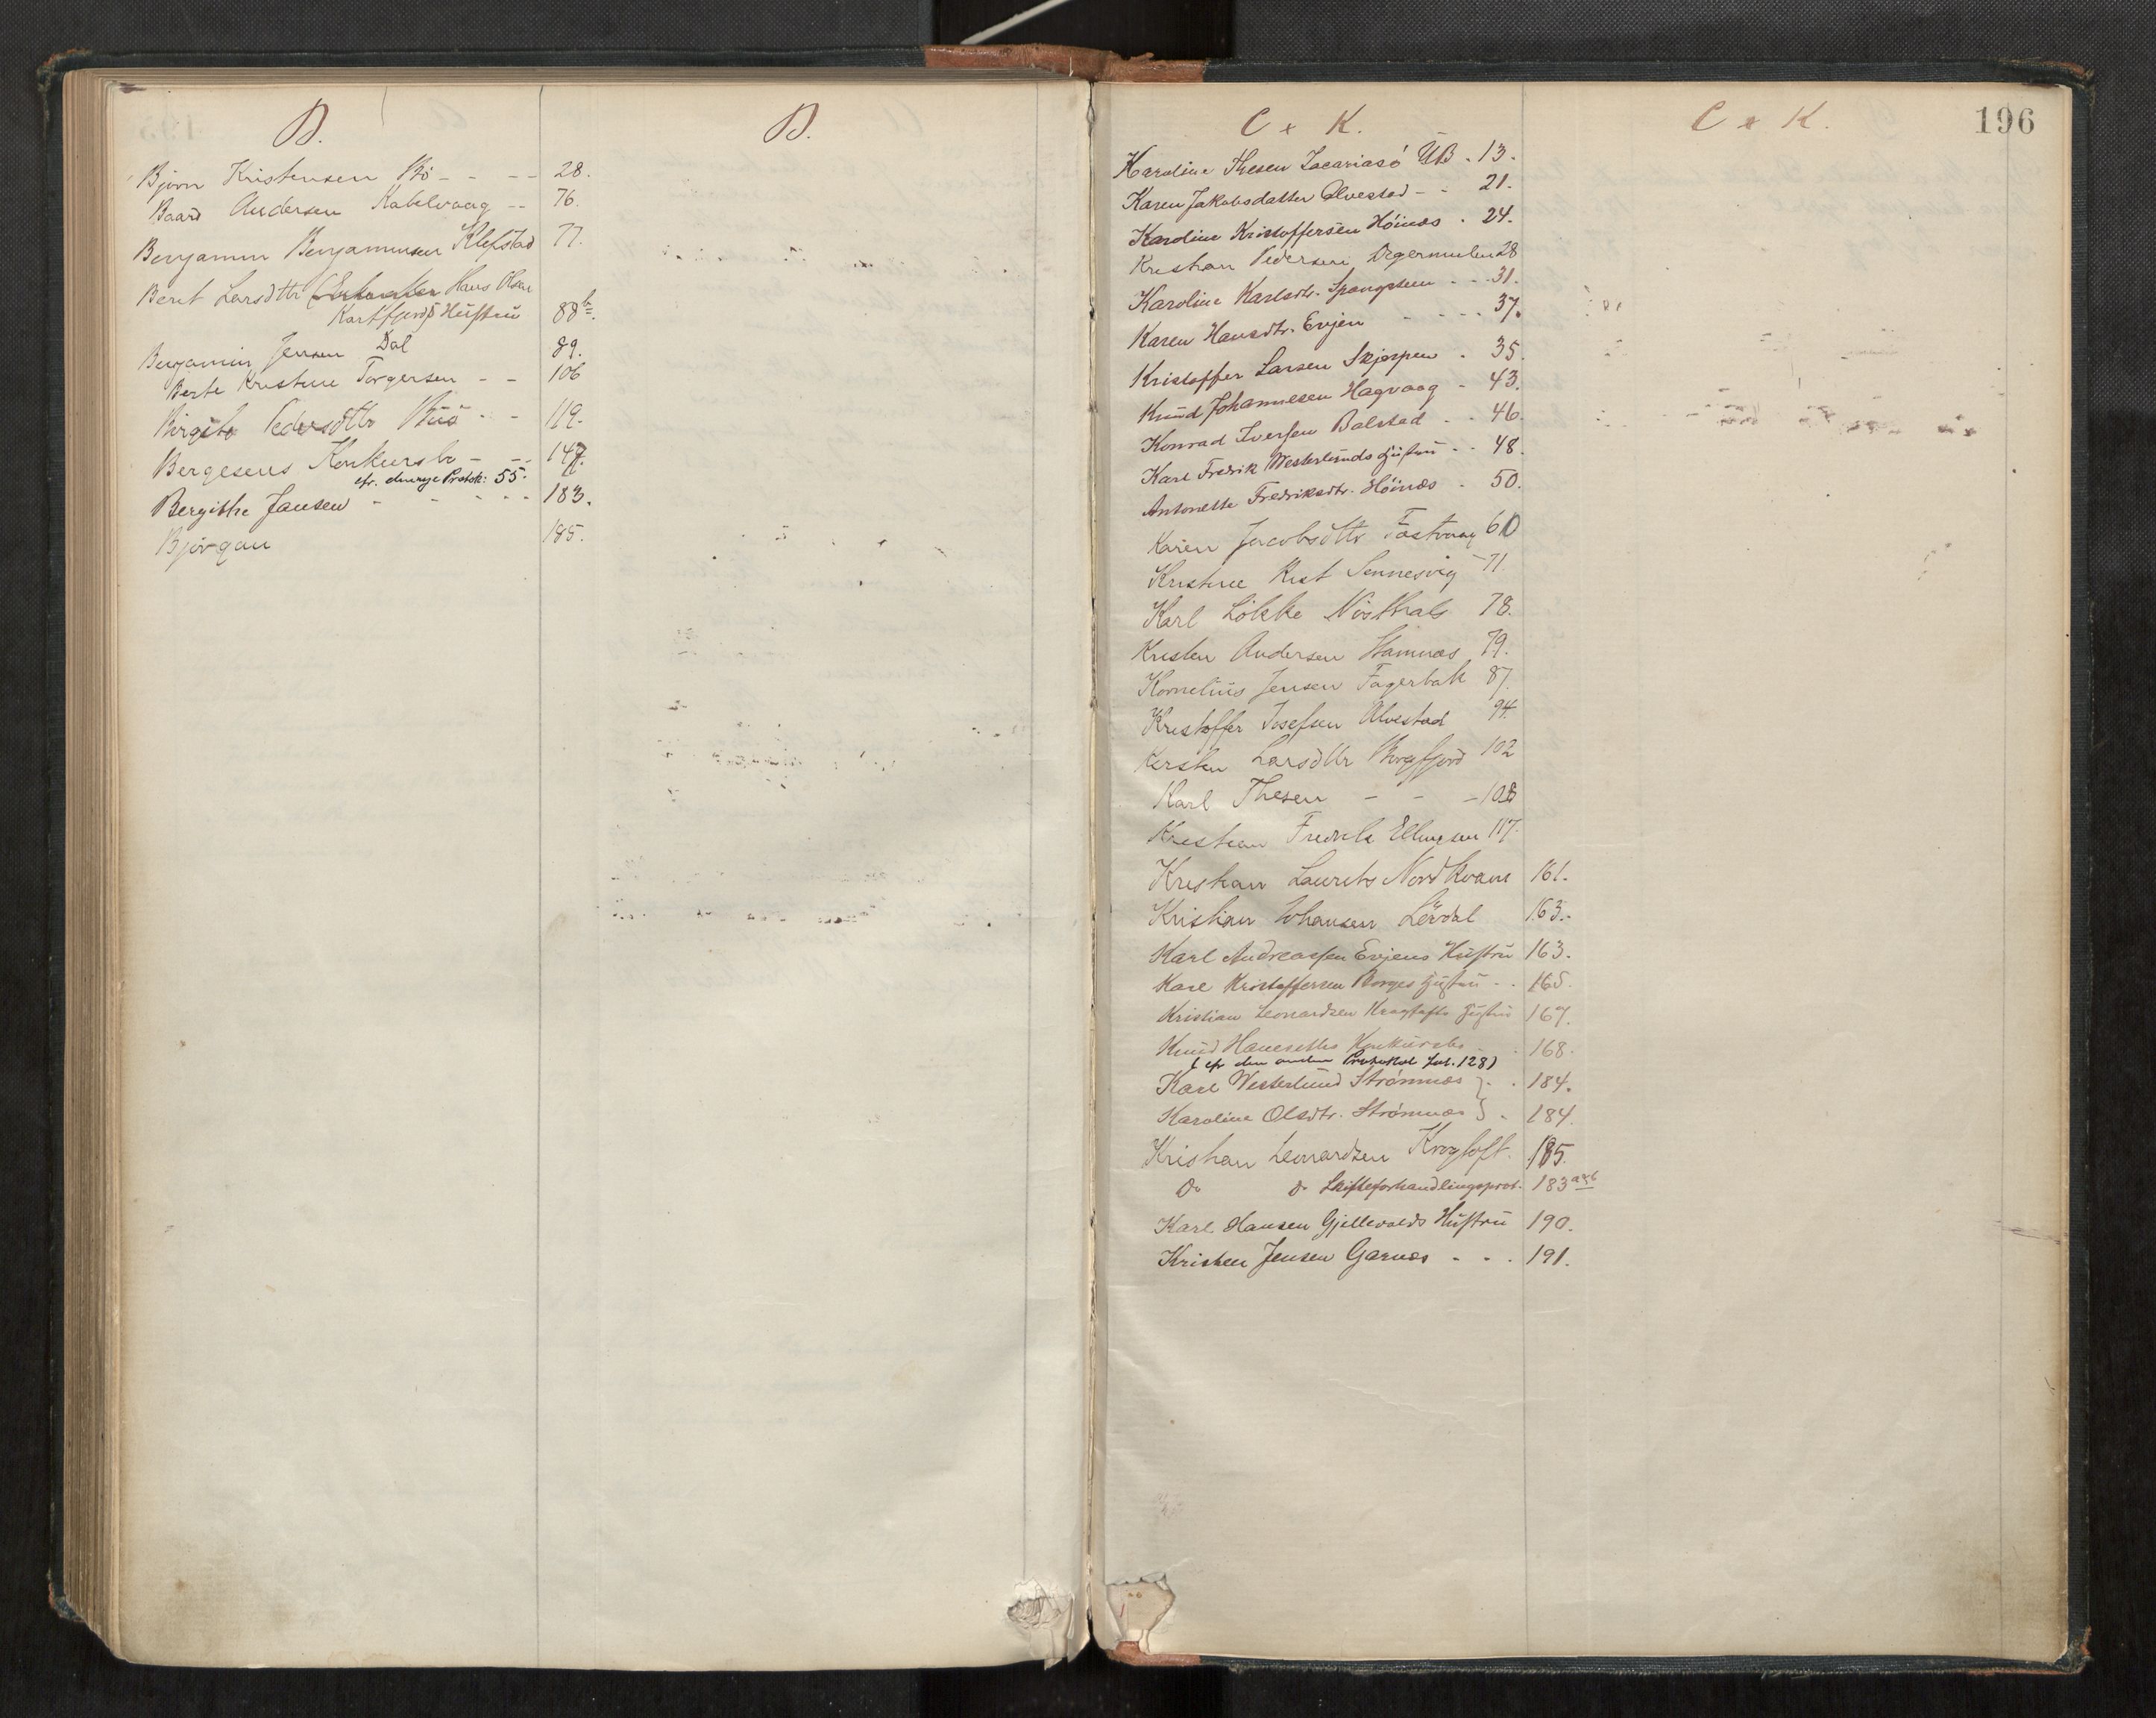 B.
B.
Bjørn Kristensen Bö - - - - 28.
Baard Andersen Kabelvaag - - 76.
Benjamin Benjaminsen Klepstad 77.
Berit Larsdttr ( Hans Olsen
Hustru 88b.
Benjamin Jensen Dal 89.
Berte Kristine Torgersen - - 106
Birgite Pedersdttr - - 119.
Bergesens Konkursbo - - - 147.
cfr. Protok: 55.
Bergithe Jansen - - - - - 183.
Bjørgan 185.
C & K.
C & K.
196
Karoline Thesen Zacariasö UB . 13.
Karen Jakobsdatter Alvestad - - 21.
Karoline Kristoffersen Höinæs . 24.
Kristian Pedersen Digermulen 28
Karoline Karlsdtr. - - - 31.
Karen Hansdtr. Evjen - - - - 37.
Kristoffer Larsen Skjerpen . 35.
Knud Johannesen Hagvaag - 43.
Konrad Iversen Balstad . . 46.
Karl Fredrik Westerlunds Hustru . . 48.
Antonette Fredriksdtr. Höinæs . 50.
Karen Jacobsdttr 60
Kristine Rist Sennesvig 71.
Karl Lökke 78.
Kristen Andersen Hamnæs 79.
Kornelius Jensen Fagerbak 87.
Kristoffer Josefsen Alvestad 94.
Kirsten Larsdttr Borgfjord 102
Karl Thesen - - - 108
Kristian Fredrik Ellingsen 117.
Kristian Laurits Nordkvam 161.
Kristian Johansen Lerdal 163.
Karl Andreassen Evjens Hustru 163.
Karl Kristoffersen Borges Hustru . . 165.
Kristian Leonardsen Kragtofts Hustru 167.
Knud Haneseths Konkursbo . 168.
( cfr den anden Protokol fol. 128)
Karl Westerlund Strömnæs } . . 184.
Karoline Olsdtr. Strömnæs } . 184.
Kristian Leonardsen Krogtoft. 185.
Do Do Skifteforhandlingsprot. 183 a&b
Karl Hansen Gjellevolds Hustru 190.
Kristen Jensen Garnæs - - . 191.